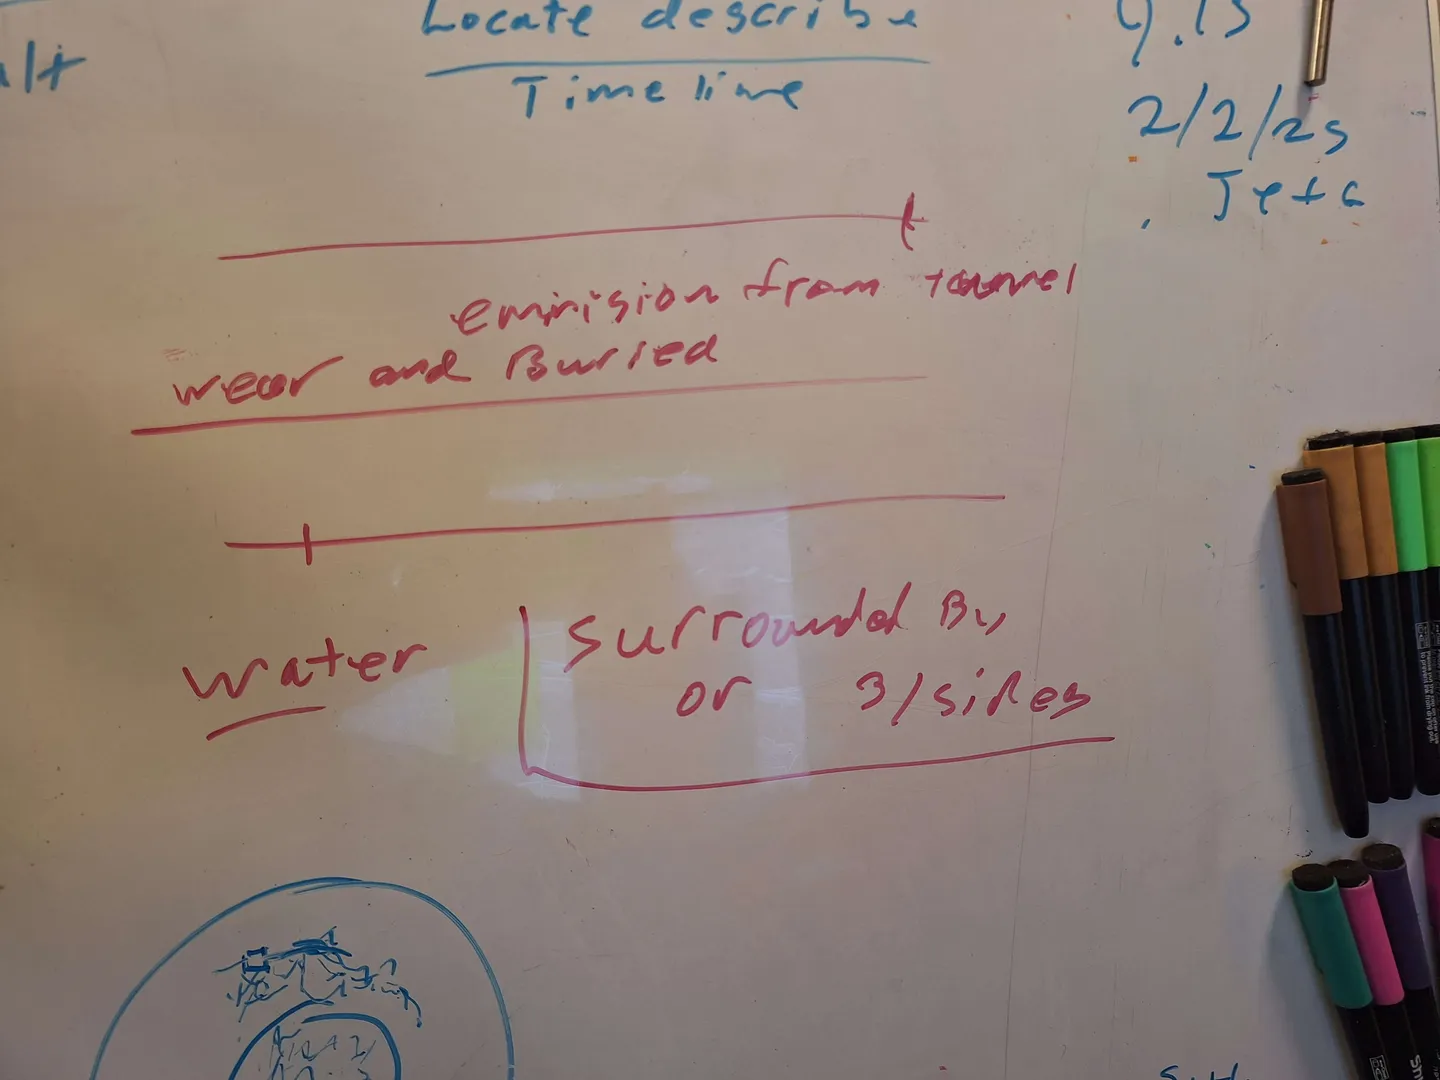 Locate describe
Time line
alt
9.15
2/2/25
emmision from tounnel
wear and Buried
water
Surrounded By
or 3/sides